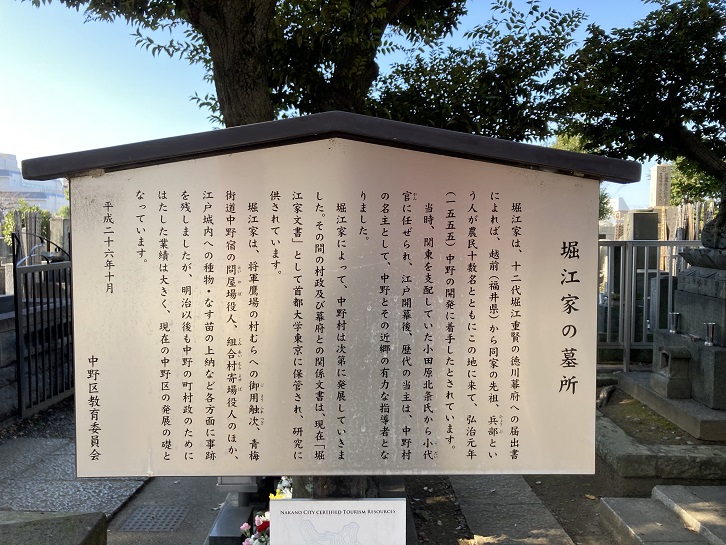 堀江家の墓所
堀江家は、十二代堀江重賢の徳川幕府への届出書
によれば、越前(福井県)から同家の先祖、兵部とい
う人が農民十数名とともにこの地に来て、弘治元年
(一五五五)中野の開発に着手したとされています。
当時、関東を支配していた小田原北条氏から小代
官に任ぜられ、江戸開幕後、歴代の当主は、中野村
の名主として、中野とその近郷の有力な指導者とな
りました。
堀江家によって、中野村は次第に発展していきま
した。その間の村政及び幕府との関係文書は、現在「堀
江家文書」として首都大学東京に保管され、研究に
供されています。
堀江家は、将軍鷹場の村むらへの御用触次、青梅
街道中野宿の問屋場役人、組合村寄場役人のほか、
江戸城内への種物・なす苗の上納など各方面に事跡
を残しましたが、明治以後も中野の町村政のために
はたした業績は大きく、現在の中野区の発展の礎と
なっています。
平成二十六年十月
中野区教育委員会
NAKANO CITY CERTIFIED TOURISM RESOURCES